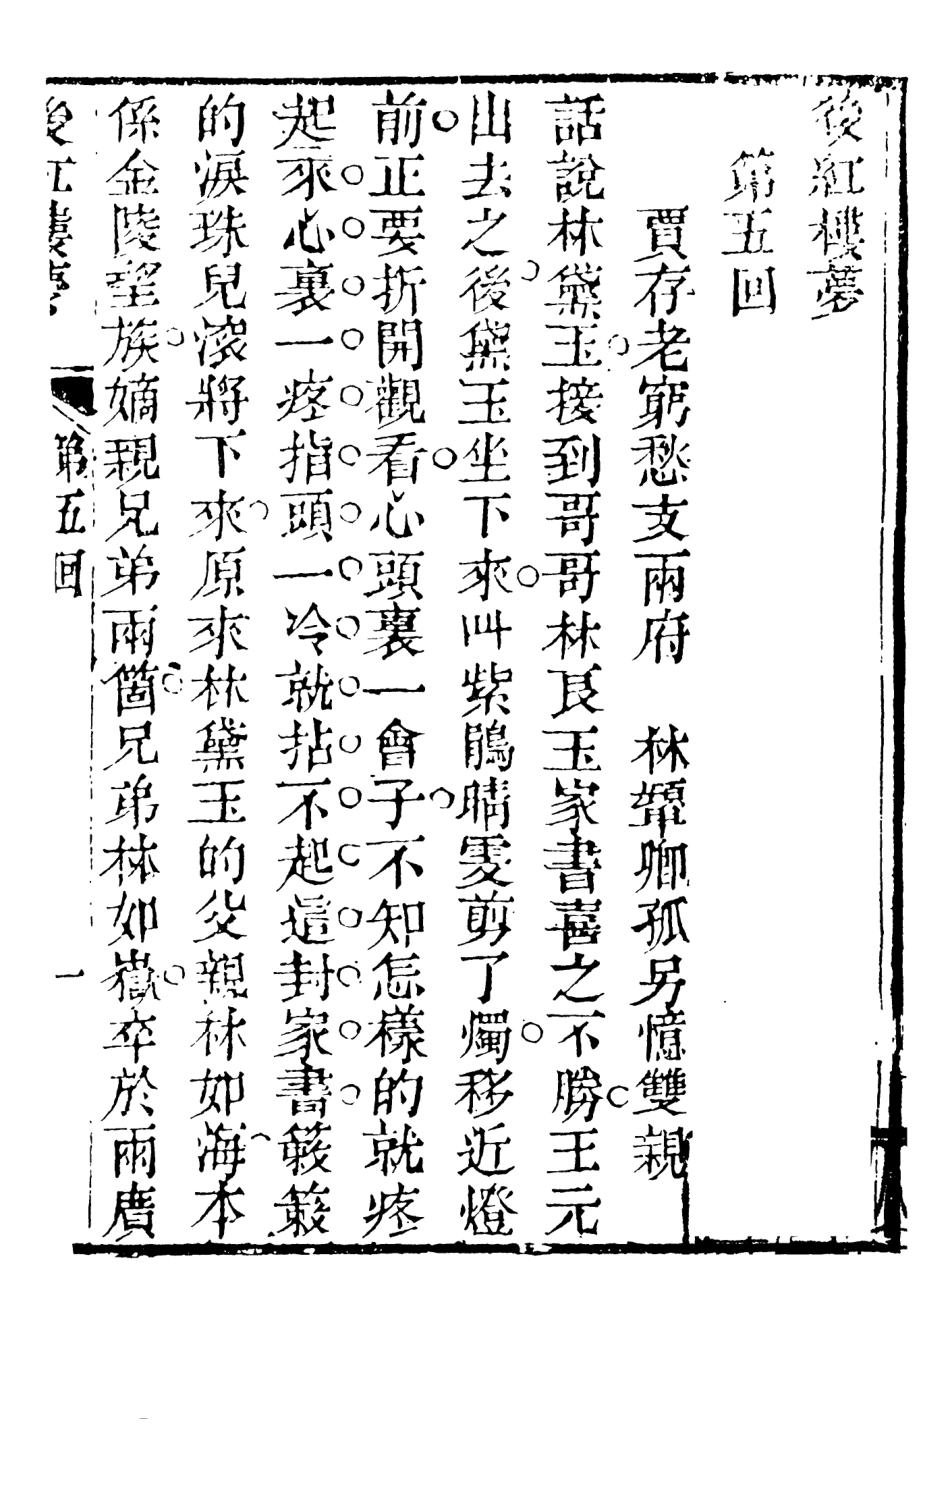 後紅樓夢
第五回
賈存老窮愁支兩府　林顰卿孤另憶雙親
話說林黛玉接到哥哥林良玉家書喜之不勝王元
出去之後黛玉坐下來叫紫鵑晴雯剪了燭移近燈
前正要折開觀看心頭裏一會子不知怎樣的就疼
起來心裏一疼指頭一冷就拈不起這封家書簌簌
的淚珠兒滾將下來原來林黛玉的父親林如海本
係金陵望族嫡親兄弟兩箇兄弟林如嶽卒於兩廣
後紅樓夢　第五回　一